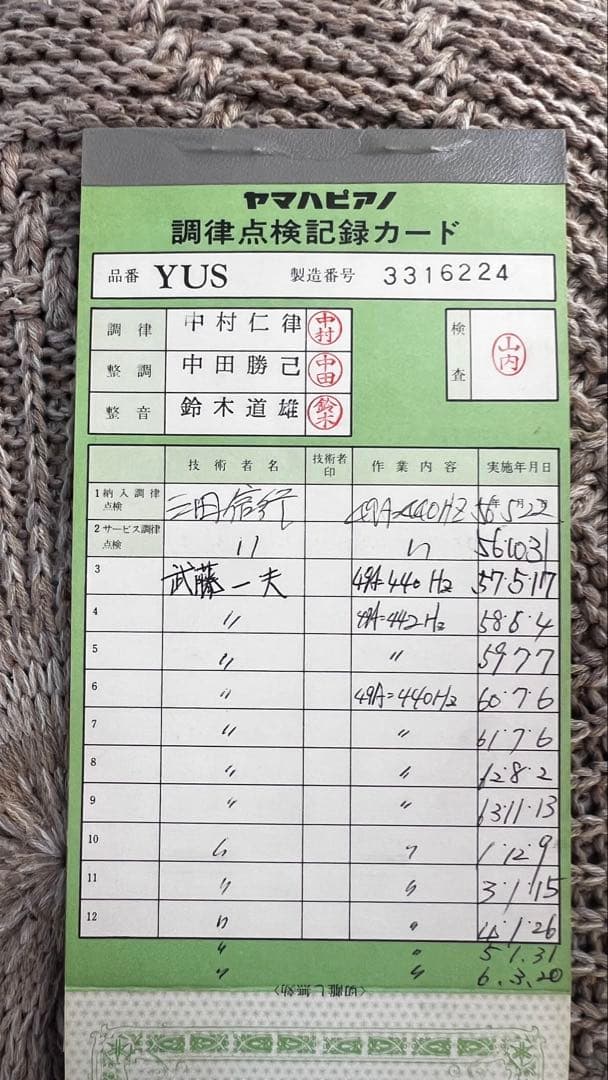 ヤマハピアノ
調律点検記録カード
品番 YUS 製造番号 3316224
調律 中村仁律 中村
整調 中田勝己 中田
整音 鈴木道雄 鈴木
検査 山内
技術者名 技術者印 作業内容 実施年月日
1 納入調律点検 三田信行 49A=440Hz 56年5月2日
2 サービス調律点検 〃 〃 56.10.31
3 武藤一夫 49A=440Hz 57.5.17
4 〃 49A=442Hz 58.6.4
5 〃 〃 59.7.7
6 〃 49A=440Hz 60.7.6
7 〃 〃 61.7.6
8 〃 〃 62.8.2
9 〃 〃 63.11.13
10 〃 〃 1.12.9
11 〃 〃 3.1.15
12 〃 〃 4.1.26
〃 〃 5.1.31
〃 〃 6.3.20
〈切離し無効〉